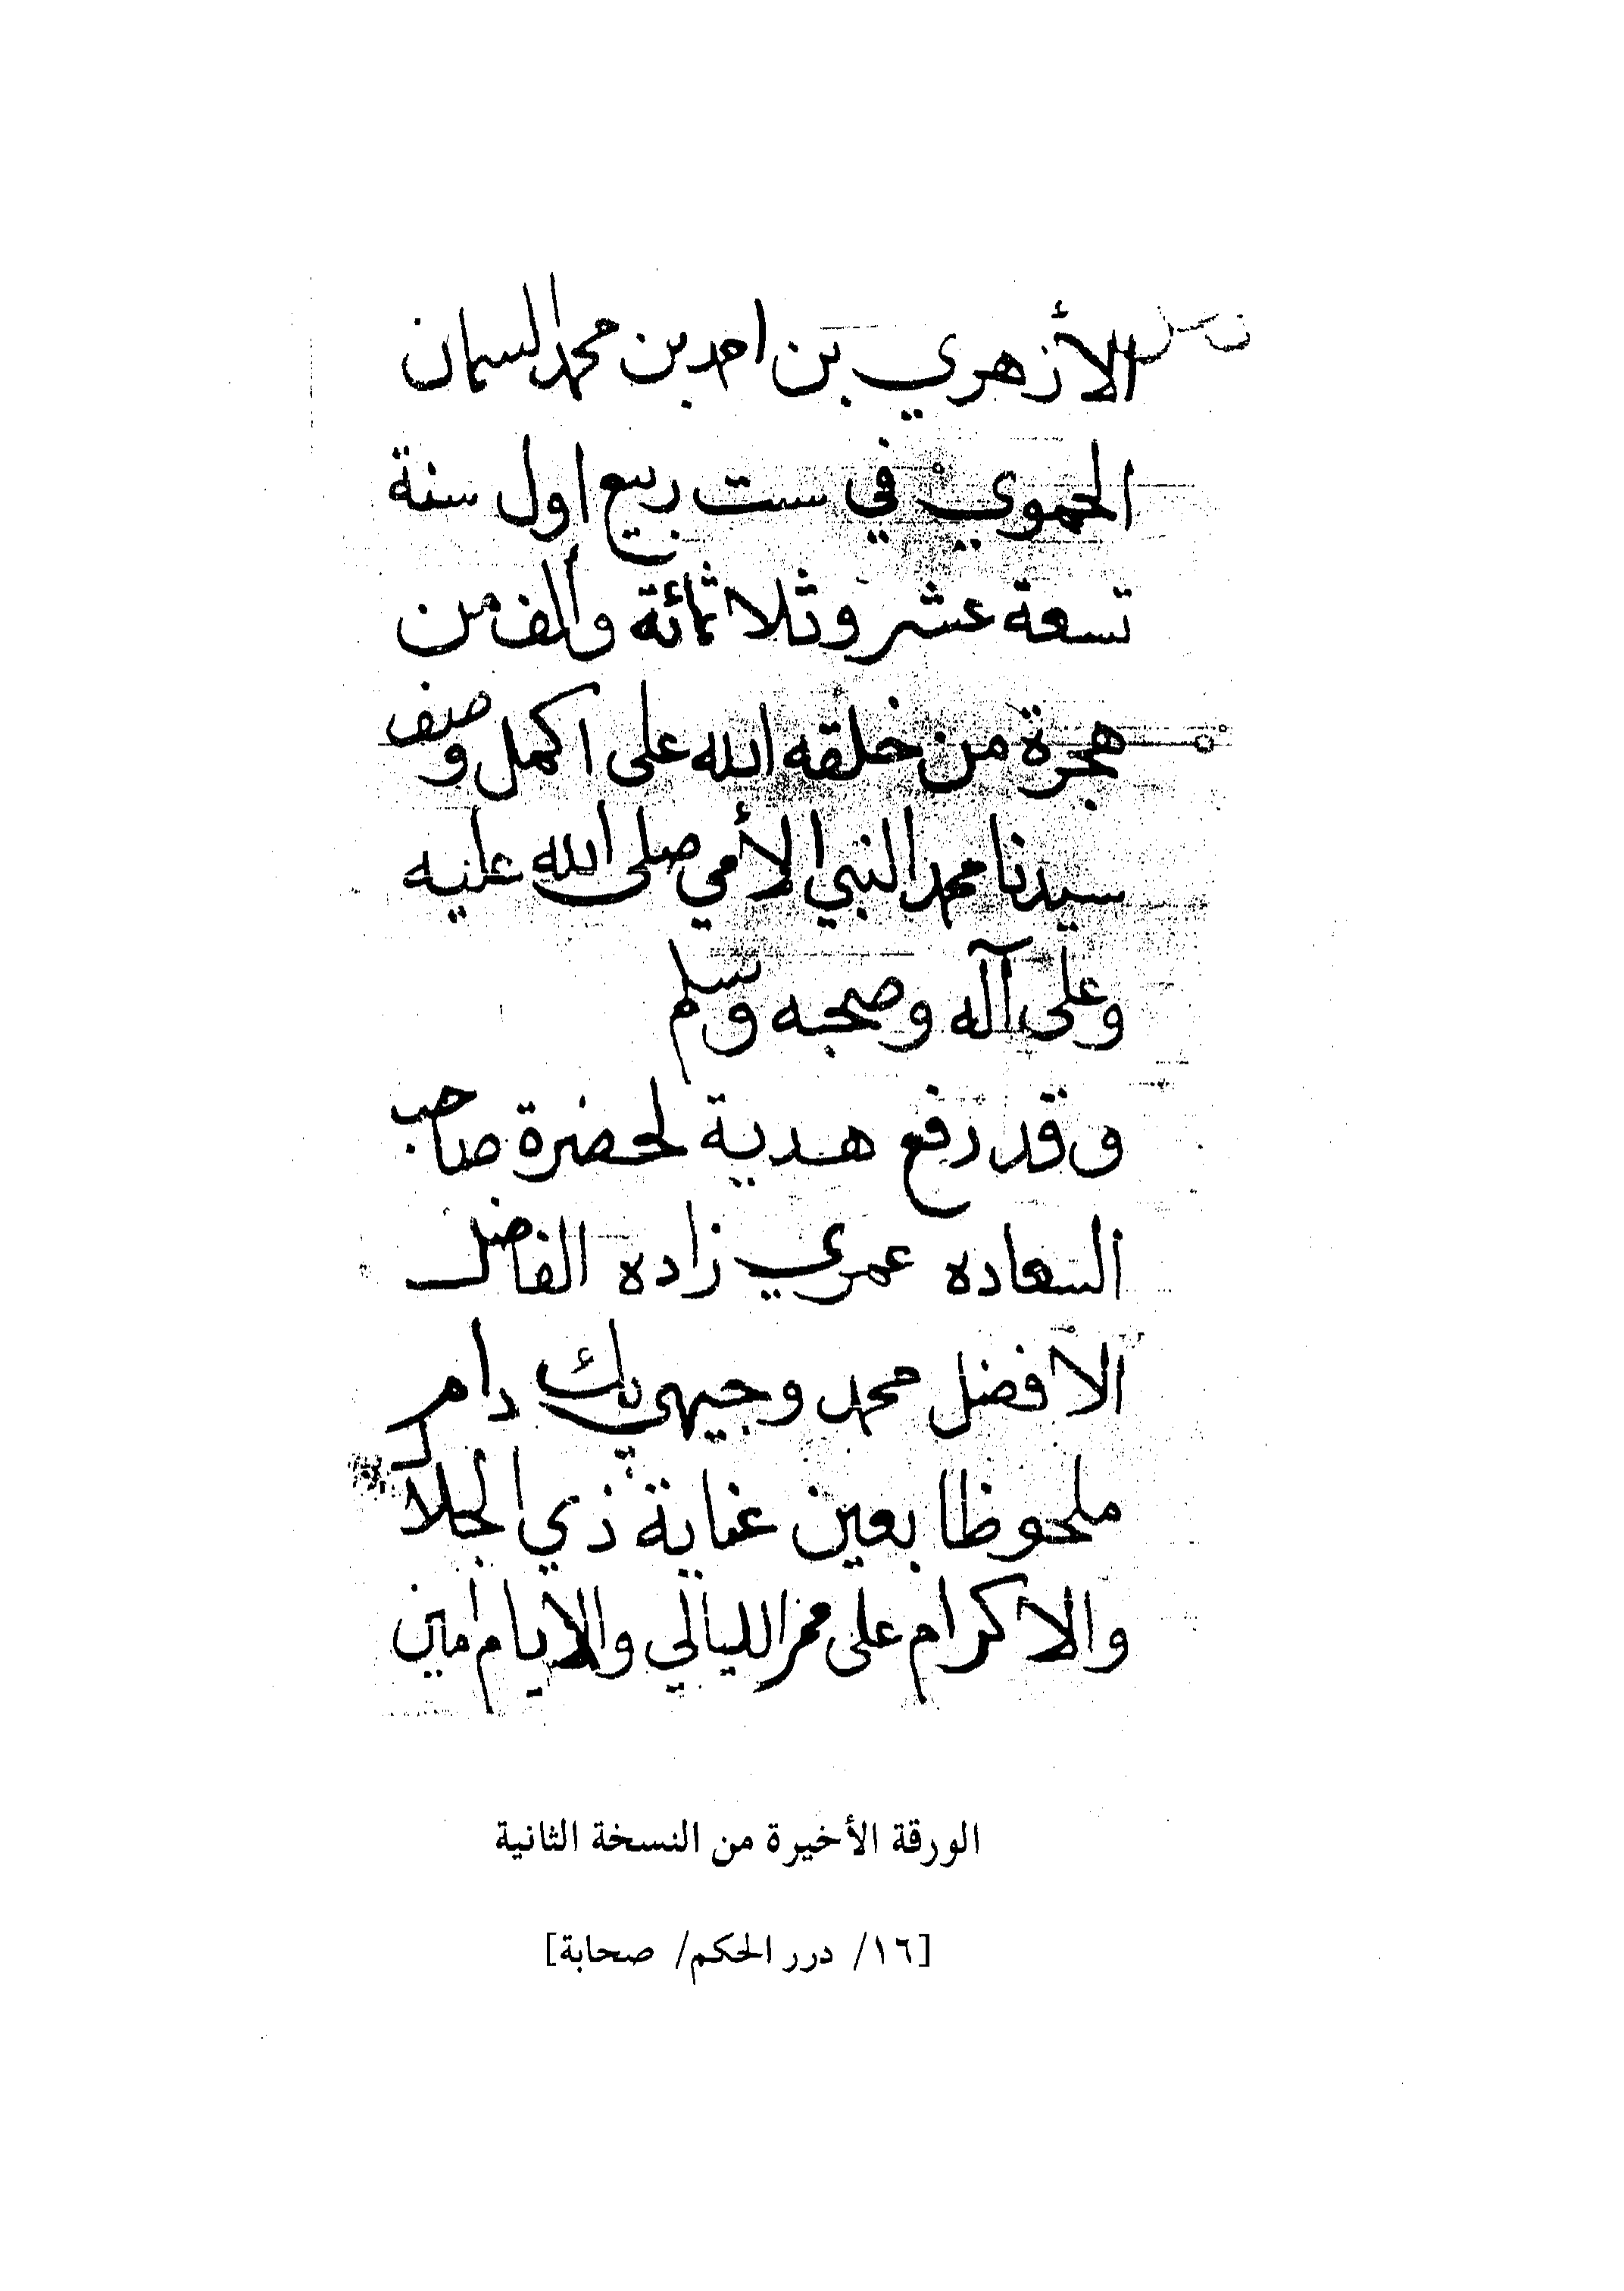 الأزهري بن احمد بن محمد السمان
الحموي في ست ربيع اول سنة
تسعة عشر وثلاثمائة والف من
هجرة من خلقه الله على اكمل وصف
سيدنا محمد النبي الأمي صلى الله عليه
وعلى آله وصحبه وسلم
وقد رفع هدية لحضرة صاحب
السعاده عمري زاده الفاضل
الافضل محمد وجيهي بك دام
ملحوظا بعين عناية ذي الجلال
والاكرام على ممر الليالي والايام امين
الورقة الأخيرة من النسخة الثانية
[١٦/ درر الحكم/ صحابة]